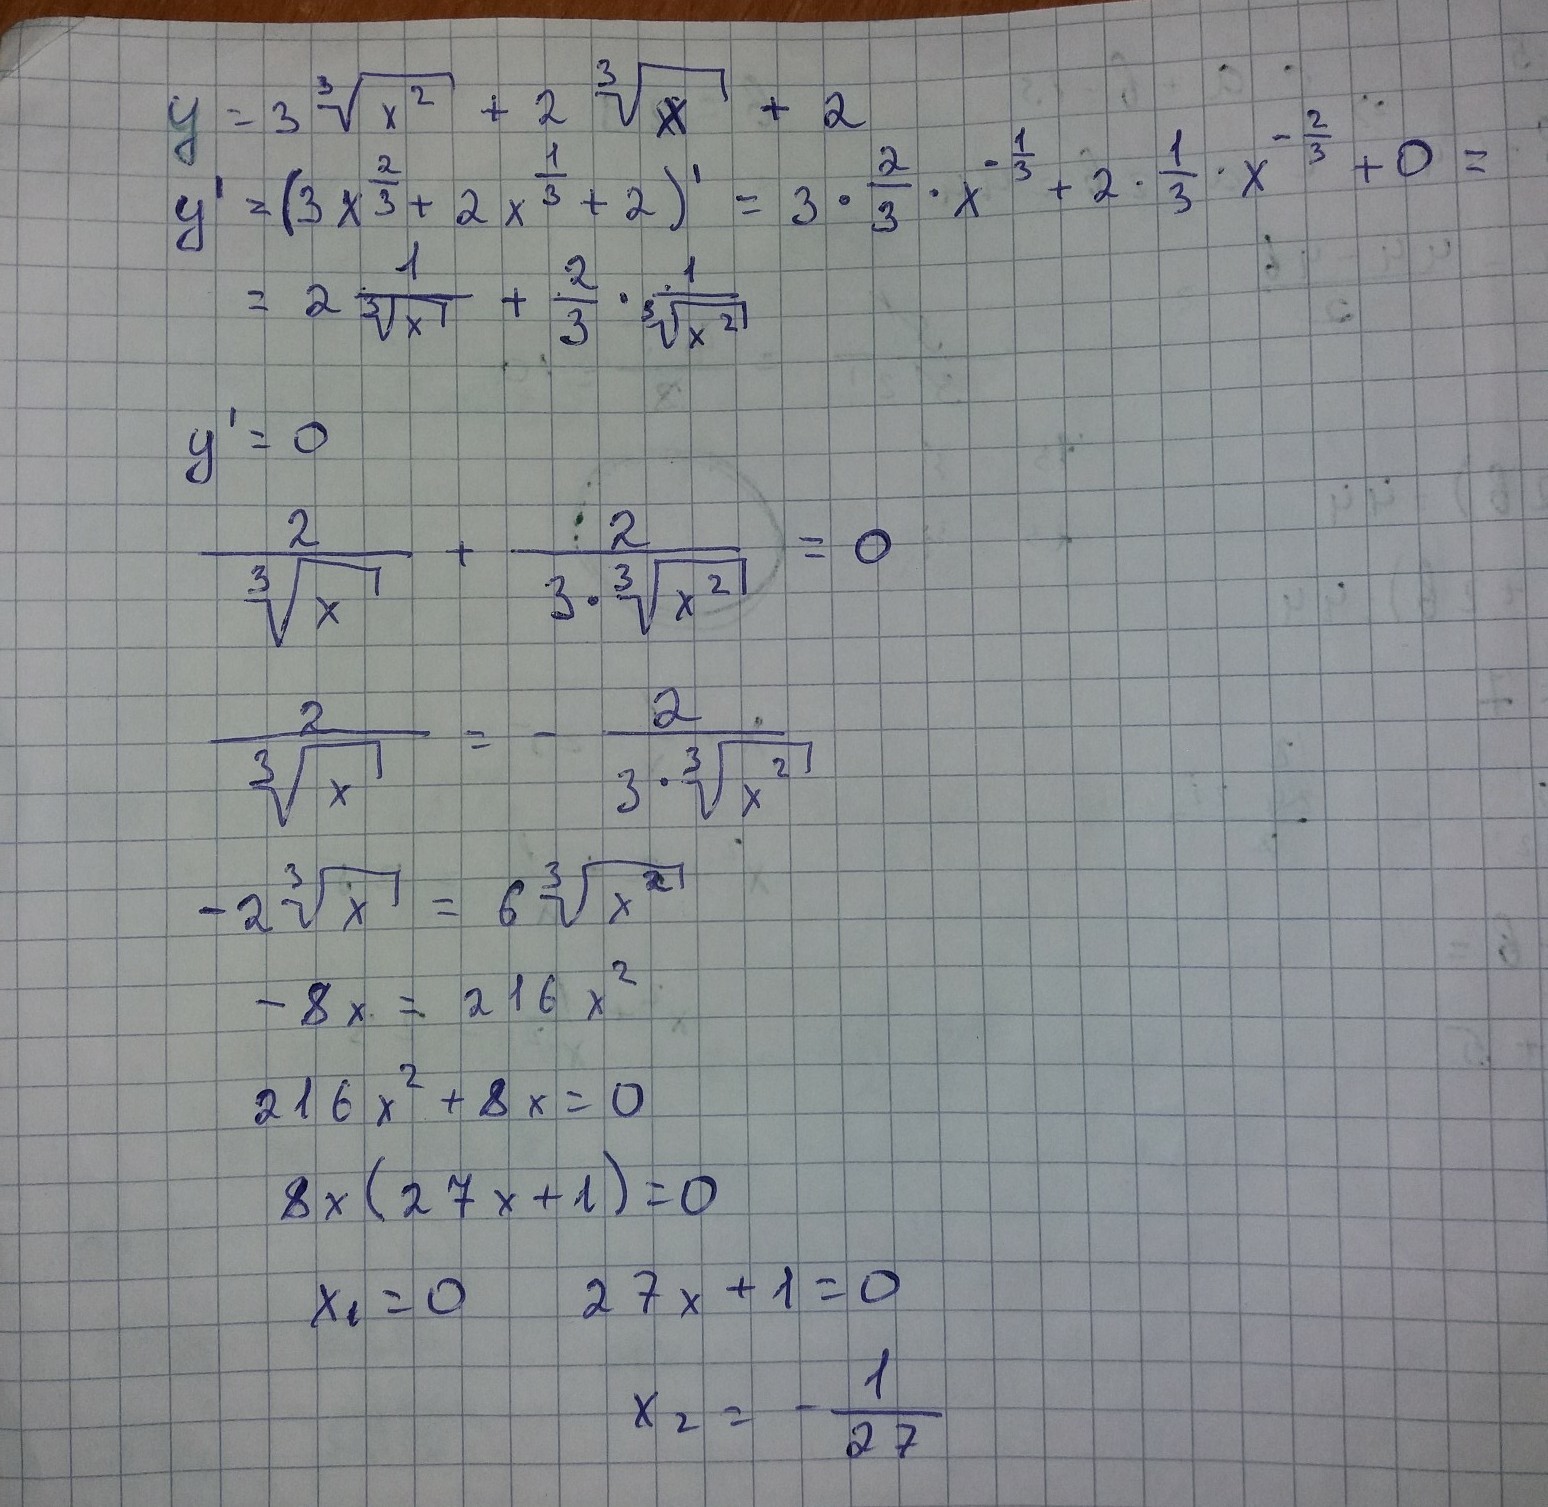 y = 3 ∛x² + 2 ∛x + 2
y' = (3x^(2/3) + 2x^(1/3) + 2)' = 3 · 2/3 · x^(-1/3) + 2 · 1/3 · x^(-2/3) + 0 =
= 2 1/∛x + 2/3 · 1/∛x²
y' = 0
2/∛x + 2/(3·∛x²) = 0
2/∛x = - 2/(3·∛x²)
-2∛x = 6∛x²
-8x = 216x²
216x² + 8x = 0
8x(27x+1) = 0
x₁ = 0 27x + 1 = 0
x₂ = - 1/27